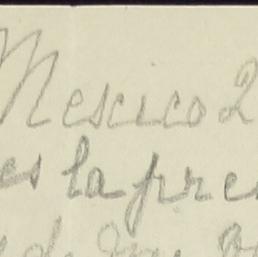 Mexico 2
es la pre